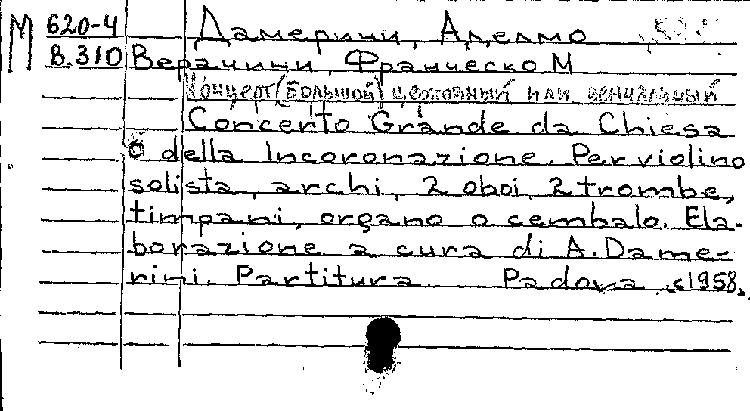 М 620-4 Дамерини, Аделмо
В.310 Верачини, Франческо М
Концерт (Большой) церковный или венчальный
Concerto Grande da Chiesa
o della Incoronazione. Per violino
solista, archi, 2 oboi, 2 trombe,
timpani, organo o cembalo. Ela-
borazione a cura di A. Dame-
rini. Partitura Padova, <1958.